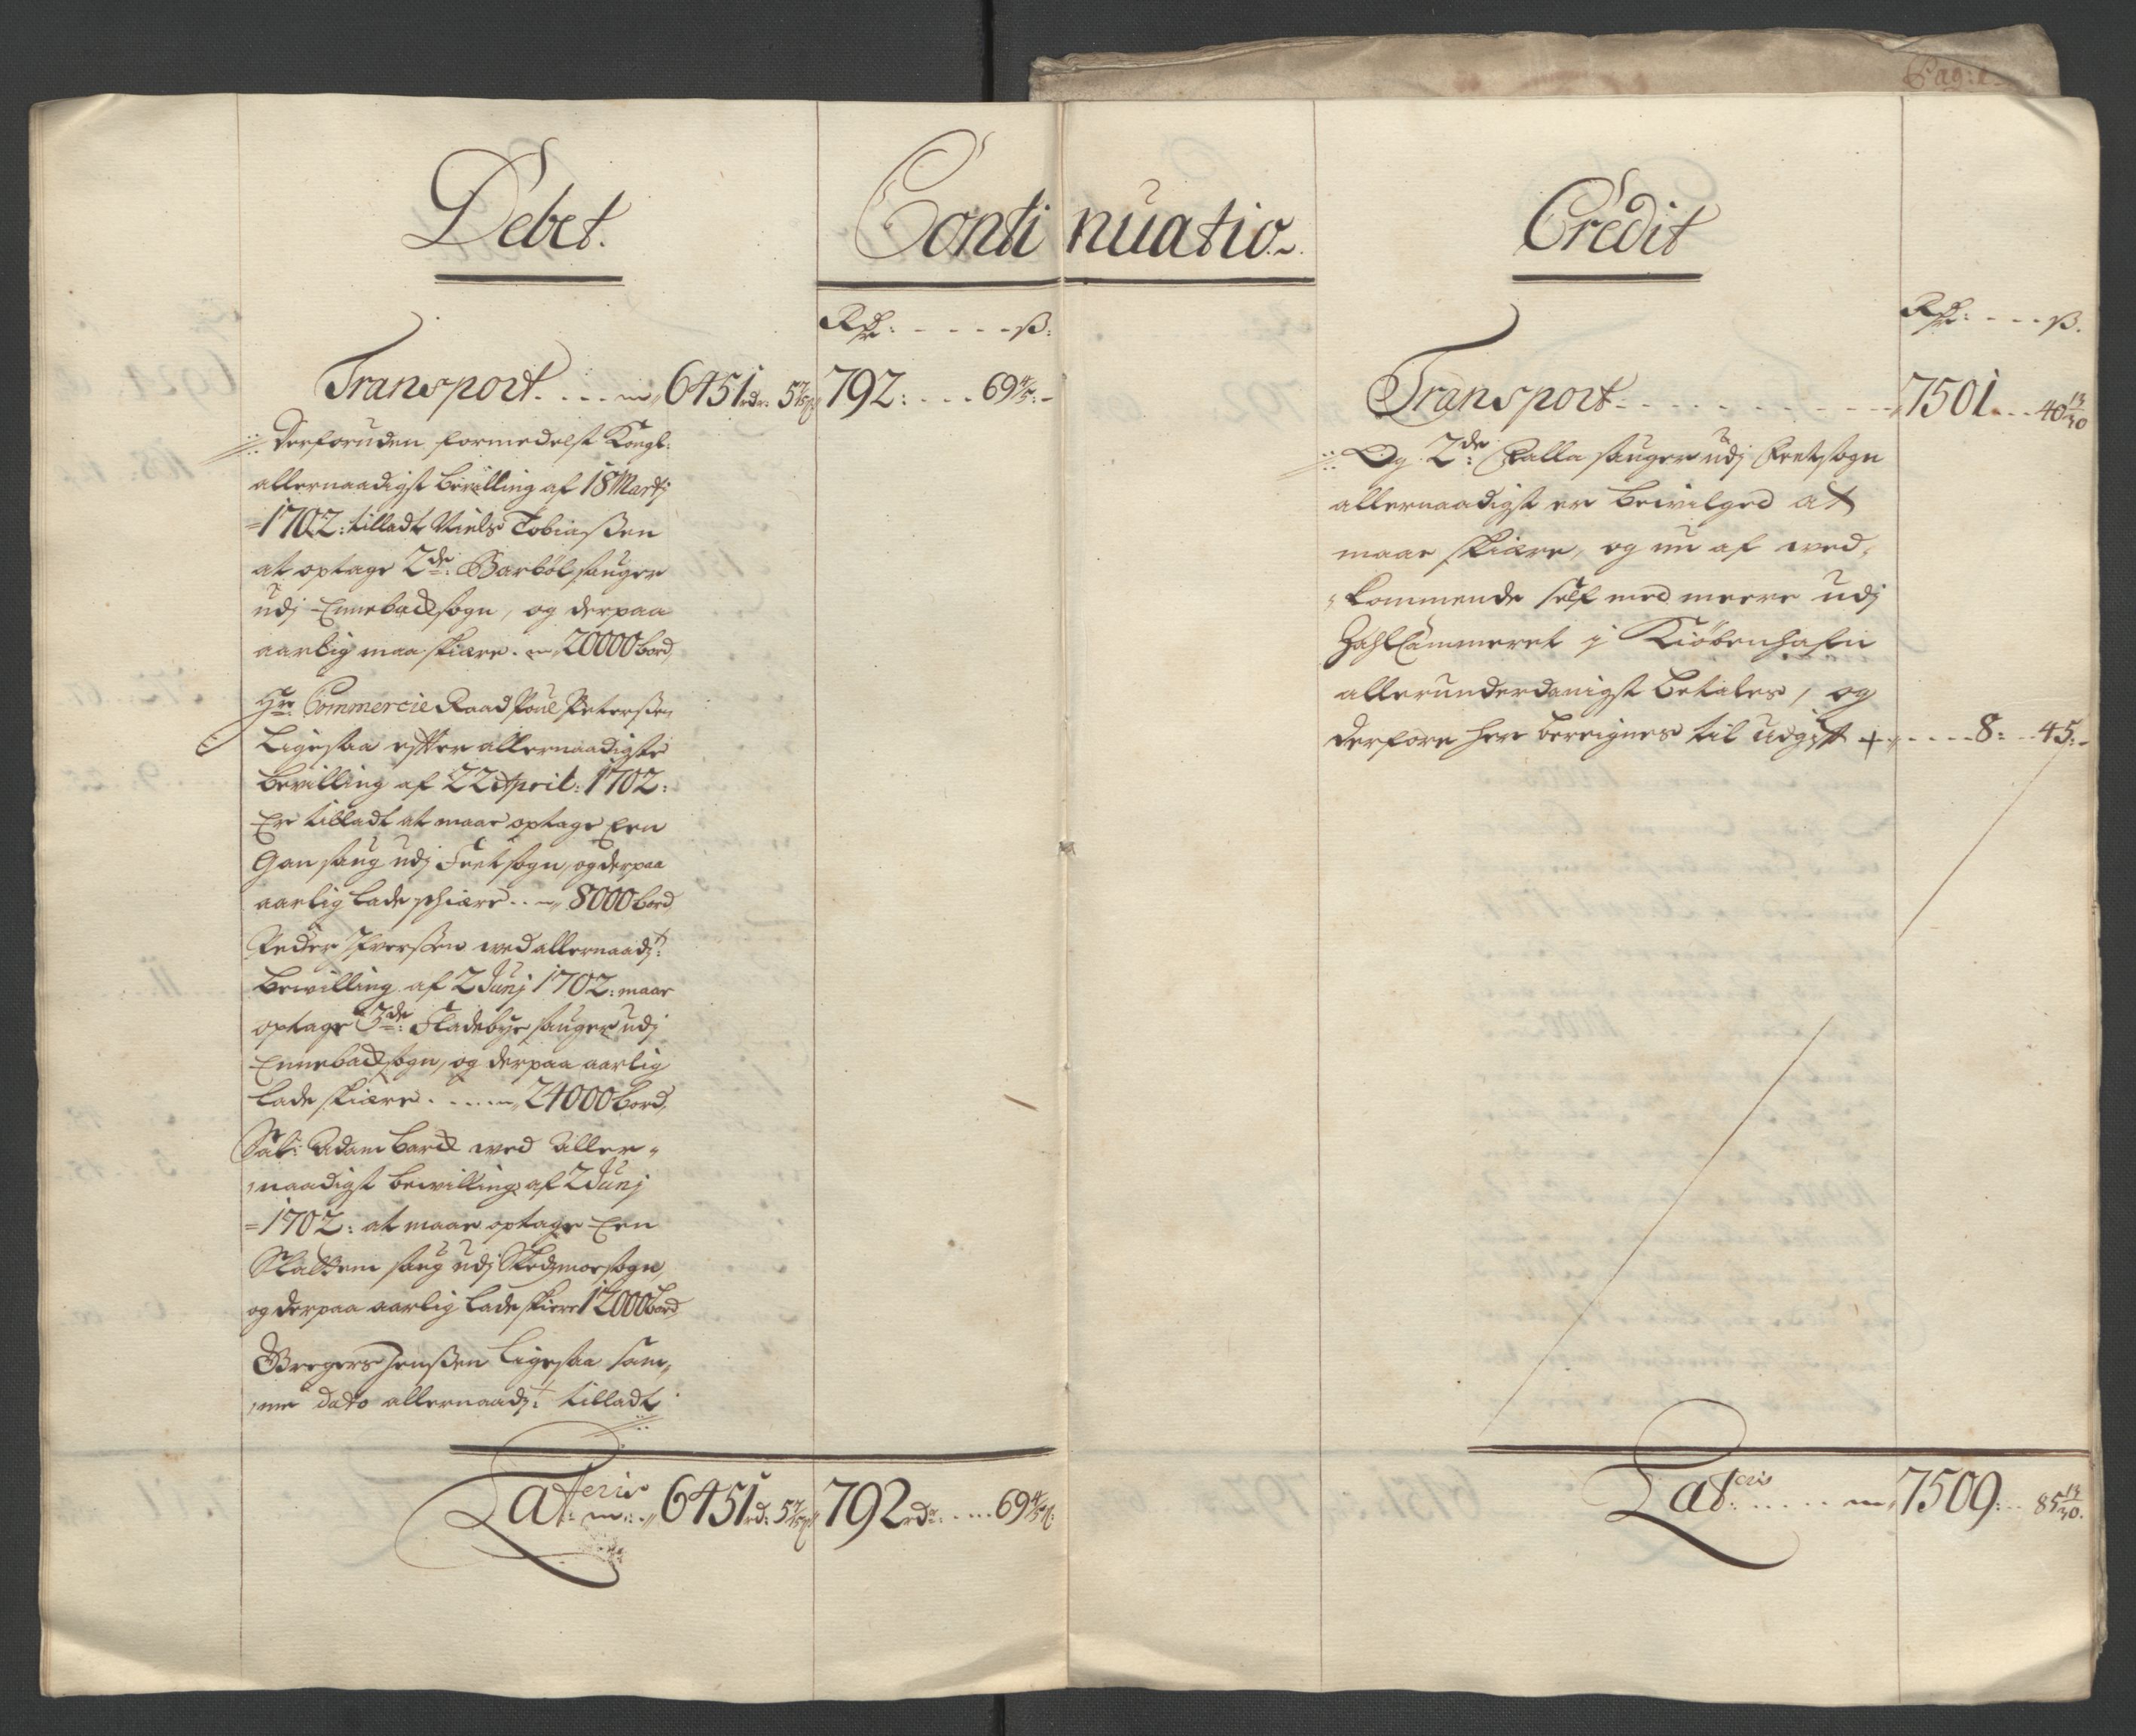 Pag: 1
Debet.
Continuatio.
Credit
Rdr: - - - - ß:
Transport. . . . 6451 rdr: 5 792: . . . 69 4/5: -
Derforuden formedelst Kongl:
allernaadigst bevilling af 18 Martj
=1702: tilladt Niels Tobiaßen
at optage 2de: Barböl sauger
udj Ennebacksogn, og derpaa
aarlig maa skiære. 20000 bord,
Hr. Commercie Raad Poul Peterßen
Ligesaa efter allernaadigste
Bevilling af 22 April: 1702:
Er tilladt at maae optage Een
Gan saug udj Feet sogn, og derpaa
aarlig lade schiære. . 8000 bord
Peder Iverßen med allernaadt:
Bewilling af 2 Junj 1702: maae
optage 3de: Fladebye sauger udj
Ennebacksogn, og derpaa aarlig
lade skiære. . . . 24000 bord,
Sal: Adam Barck med Aller-
naadigst bewilling af 2 Junj
=1702: at maae optage Een
Slattem saug udj Skedsmoe sogn,
og derpaa aarlig lade skiære 12000 bord
Gregers Jenßen ligesaa sam-
me dato allernaadt: tilladt
Lateris 6451 rd: 5 792 rdr: . . . . 69 4/5 ß:
Rdr: - - - ß.
Transport - - - - - - - - - 7501. . . 40 13/30
Og 2de: Falla sauger udj Feetsogn
allernaadigst er bewilged at
maae skiære, og nu af wed-
kommende self med meere udj
Zahl Cammeret j Kiöbenhafn
allerunderdanigst betales, og
derfore her bereignes til udgift + . . . . 8: . . 45: -
Lateris . . . . . 7509: . . 85 13/30.